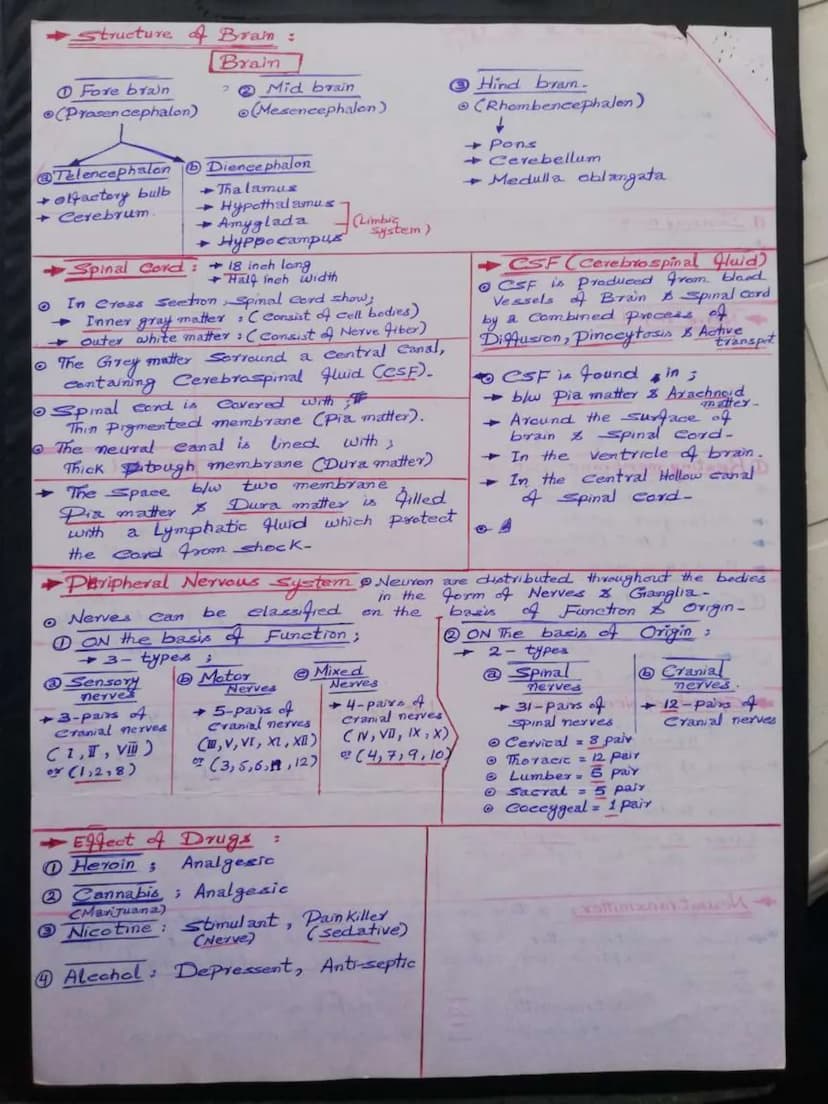 → Structure of Brain :
Brain
① Fore brain
(Prosencephalon)
② Mid brain
(Mesencephalon)
③ Hind bram.
(Rhombencephalon)
→ Pons
→ Cerebellum
→ Medulla oblangata
ⓐ Telencephalon
→ olfactory bulb
→ Cerebrum.
ⓑ Diencephalon
→ Thalamus
→ Hypothalamus
→ Amyglada
→ Hyppocampus
(Limbic system)
→ Spinal Cord :
→ 18 inch long
→ Half inch width
In Cross Section, Spinal Cord show;
→ Inner gray matter : (Consist of cell bodies)
→ outer white matter : (Consist of Nerve fiber)
The Grey matter Sorround a central Canal,
containing Cerebrospinal fluid (CSF).
Spinal cord is Covered with ;
Thin Pigmented membrane (Pia matter).
The neural canal is lined with ;
Thick tough membrane (Dura matter)
→ The Space b/w two membrane,
Pia matter & Dura matter is filled
with a Lymphatic fluid which protect
the cord from shock-
→ CSF (Cerebrospinal fluid)
CSF is Produced from blood
Vessels of Brain & Spinal cord
by a Combined Process of
Diffusion, Pinocytosis & Active
transpt
CSF is found in ;
→ b/w Pia matter & Arachnoid
matter-
→ Around the Surface of
brain & Spinal Cord-
→ In the ventricle of brain.
→ In the Central Hollow canal
of Spinal Cord-
→ Peripheral Nervous System
Neuron are distributed throughout the bodies
in the form of Nerves & Ganglia-
Nerves can be classified on the basis of Function & Origin-
① ON the basis of Function ;
→ 3- types ;
ⓐ Sensory
nerves
→ 3-pairs of
Cranial nerves
( I, II, VIII )
or (1, 2, 8)
ⓑ Motor
Nerves
→ 5-pairs of
Cranial nerves
(III, V, VI, XI, XII)
or (3, 5, 6, 11, 12)
ⓒ Mixed
Nerves
→ 4-pairs of
Cranial nerves
(IV, VII, IX, X)
or (4, 7, 9, 10)
② ON The basis of Origin :
→ 2- types
ⓐ Spinal
nerves
→ 31-pairs of
Spinal nerves
Cervical = 8 pair
Thoracic = 12 pair
Lumber = 5 pair
Sacral = 5 pair
Coccygeal = 1 pair
ⓑ Cranial
nerves.
→ 12-pairs of
Cranial nerves
→ Effect of Drugs :
① Heroin ; Analgesic
② Cannabis ; Analgesic
(Marijuana)
③ Nicotine : Stimulant, Pain Killer
(Nerve) (sedative)
④ Alcohol : Depressent, Anti-septic